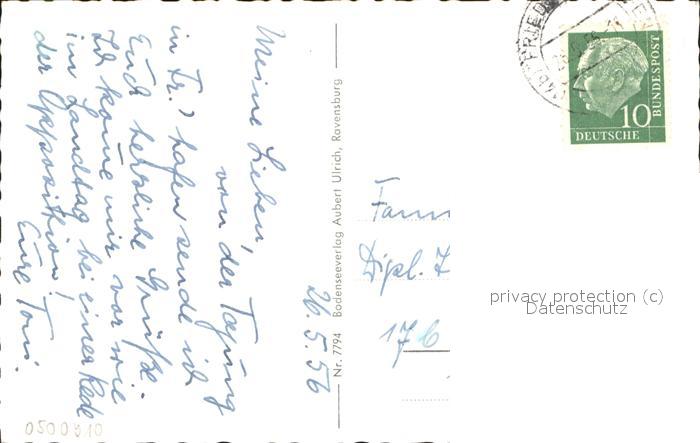 Meine Lieben,
von der Tagung
in Fr.) hafen sende ich
Euch herzliche Grüße.
Ich komme mir vor wie
im Landtag bei einer Rede
der Opposition!
Eure Toni.
26.5.56
Nr. 7794 Bodenseeverlag Aubert Ulrich, Ravensburg
Fam
Dipl. I
17b
DEUTSCHE
BUNDESPOST
10
FRIED
privacy protection (c)
Datenschutz
0500810